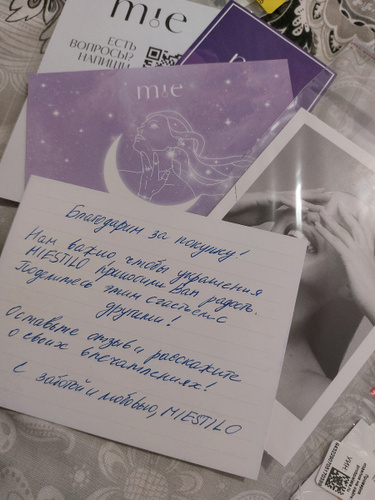 mie
ЕСТЬ
ВОПРОСЫ?
НАПИШИ
mie
Благодарим за покупку!
Нам важно, чтобы украшения
MIESTILO приносили Вам радость.
Поделитесь этим счастьем с
другими!
Оставьте отзыв и расскажите
о своих впечатлениях!
С заботой и любовью, MIESTILO